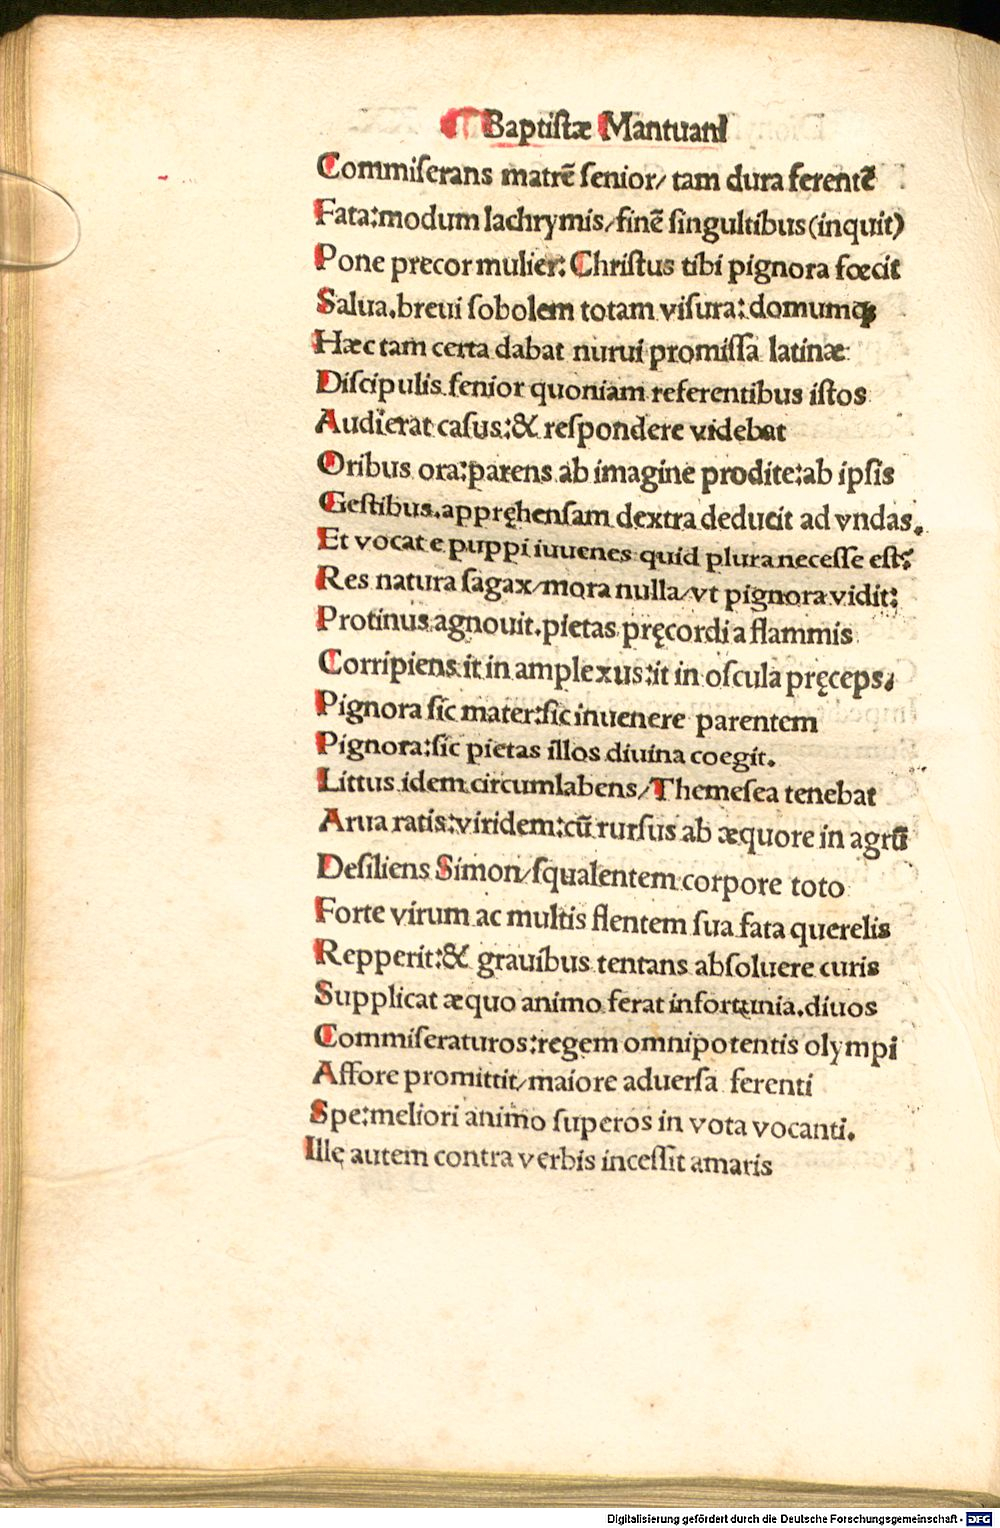 ¶ Baptistæ Mantuani
Commiſerans matrē ſenior/ tam dura ferentē
Fata:modum lachrymis/finē ſingultibus(inquit)
Pone precor mulier: Chriſtus tibi pignora fœcit
Salua.breui ſobolem totam viſura:domumqꝫ
Hæc tam certa dabat nurui promiſſa latinæ:
Diſcipulis ſenior quoniam referentibus iſtos
Audierat caſus:& reſpondere videbat
Oribus ora:parens ab imagine prodite:ab ipſis
Geſtibus.appręhenſam dextra deducit ad vndas.
Et vocat e puppi iuuenes quid plura neceſſe eſt:
Res natura ſagax/mora nulla/vt pignora vidit:
Protinus agnouit.pietas pręcordia flammis
Corripiens it in amplexus:it in oſcula pręceps.
Pignora ſic mater:ſic inuenere parentem
Pignora:ſic pietas illos diuina coegit.
Littus idem circumlabens/Themeſea tenebat
Arua ratis:viridem:cū rurſus ab æquore in agrū
Deſiliens Simon/ſqualentem corpore toto
Forte virum ac multis flentem ſua fata querelis
Repperit:& grauibus tentans abſoluere curis
Supplicat æquo animo ferat infortunia.diuos
Commiſeraturos:regem omnipotentis olympi
Affore promittit/maiore aduerſa ferenti
Spe:meliori animo ſuperos in vota vocanti.
Illę autem contra verbis inceſſit amaris
Digitalisierung gefördert durch die Deutsche Forschungsgemeinschaft - DFG